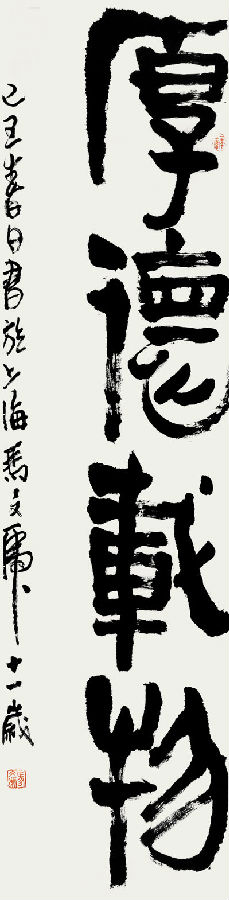 厚德載物
己丑春日書於上海馬文虎十一歲